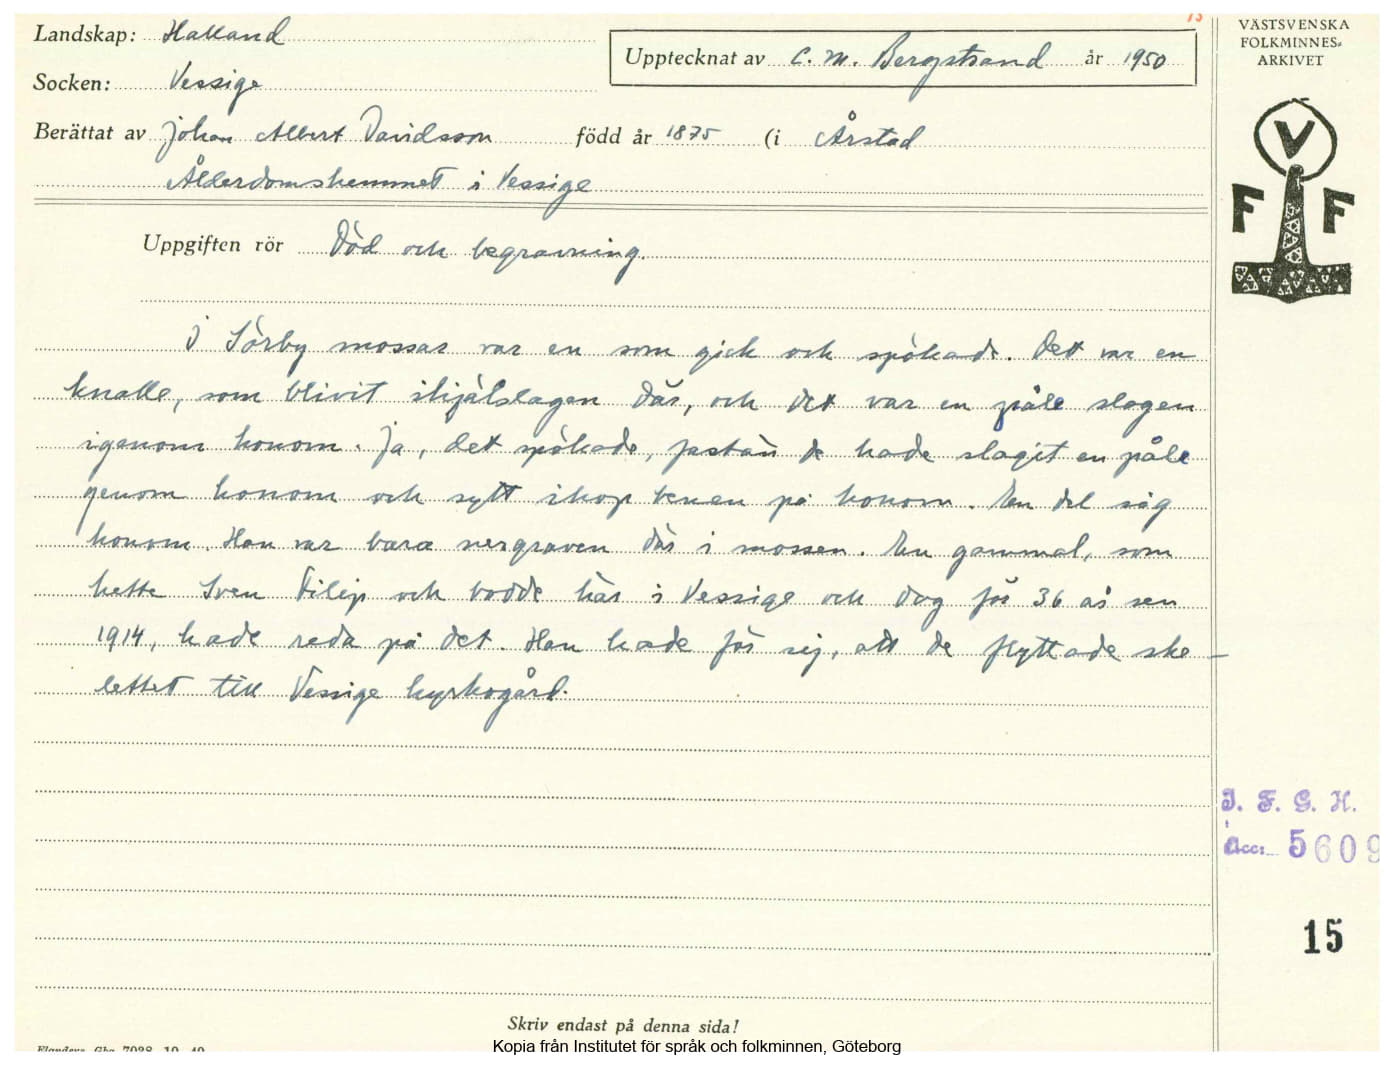 15
Landskap: Halland
Upptecknat av C. M. Bergstrand år 1950
Socken: Vessige
Berättat av Johan Albert Davidsson född år 1875 (i Årstad
Ålderdomshemmet i Vessige
VÄSTSVENSKA
FOLKMINNES-
ARKIVET
V
F F
Uppgiften rör Död och begravning.
I Sörby mossar var en som gick och spökade. Det var en
knalle, som blivit ihjälslagen där, och det var en påle slagen
igenom honom. Ja, det spökade, fastän de hade slagit en påle
genom honom och sytt ihop benen på honom. En del såg
honom. Han var bara nergraven där i mossen. En gammal, som
hette Sven Filip och bodde här i Vessige och dog för 36 år sen
1914, hade reda på det. Han hade för sej, att de flyttade ske-
lettet till Vessige kyrkogård.
I. F. G. H.
Acc: 5609
15
Skriv endast på denna sida!
Kopia från Institutet för språk och folkminnen, Göteborg